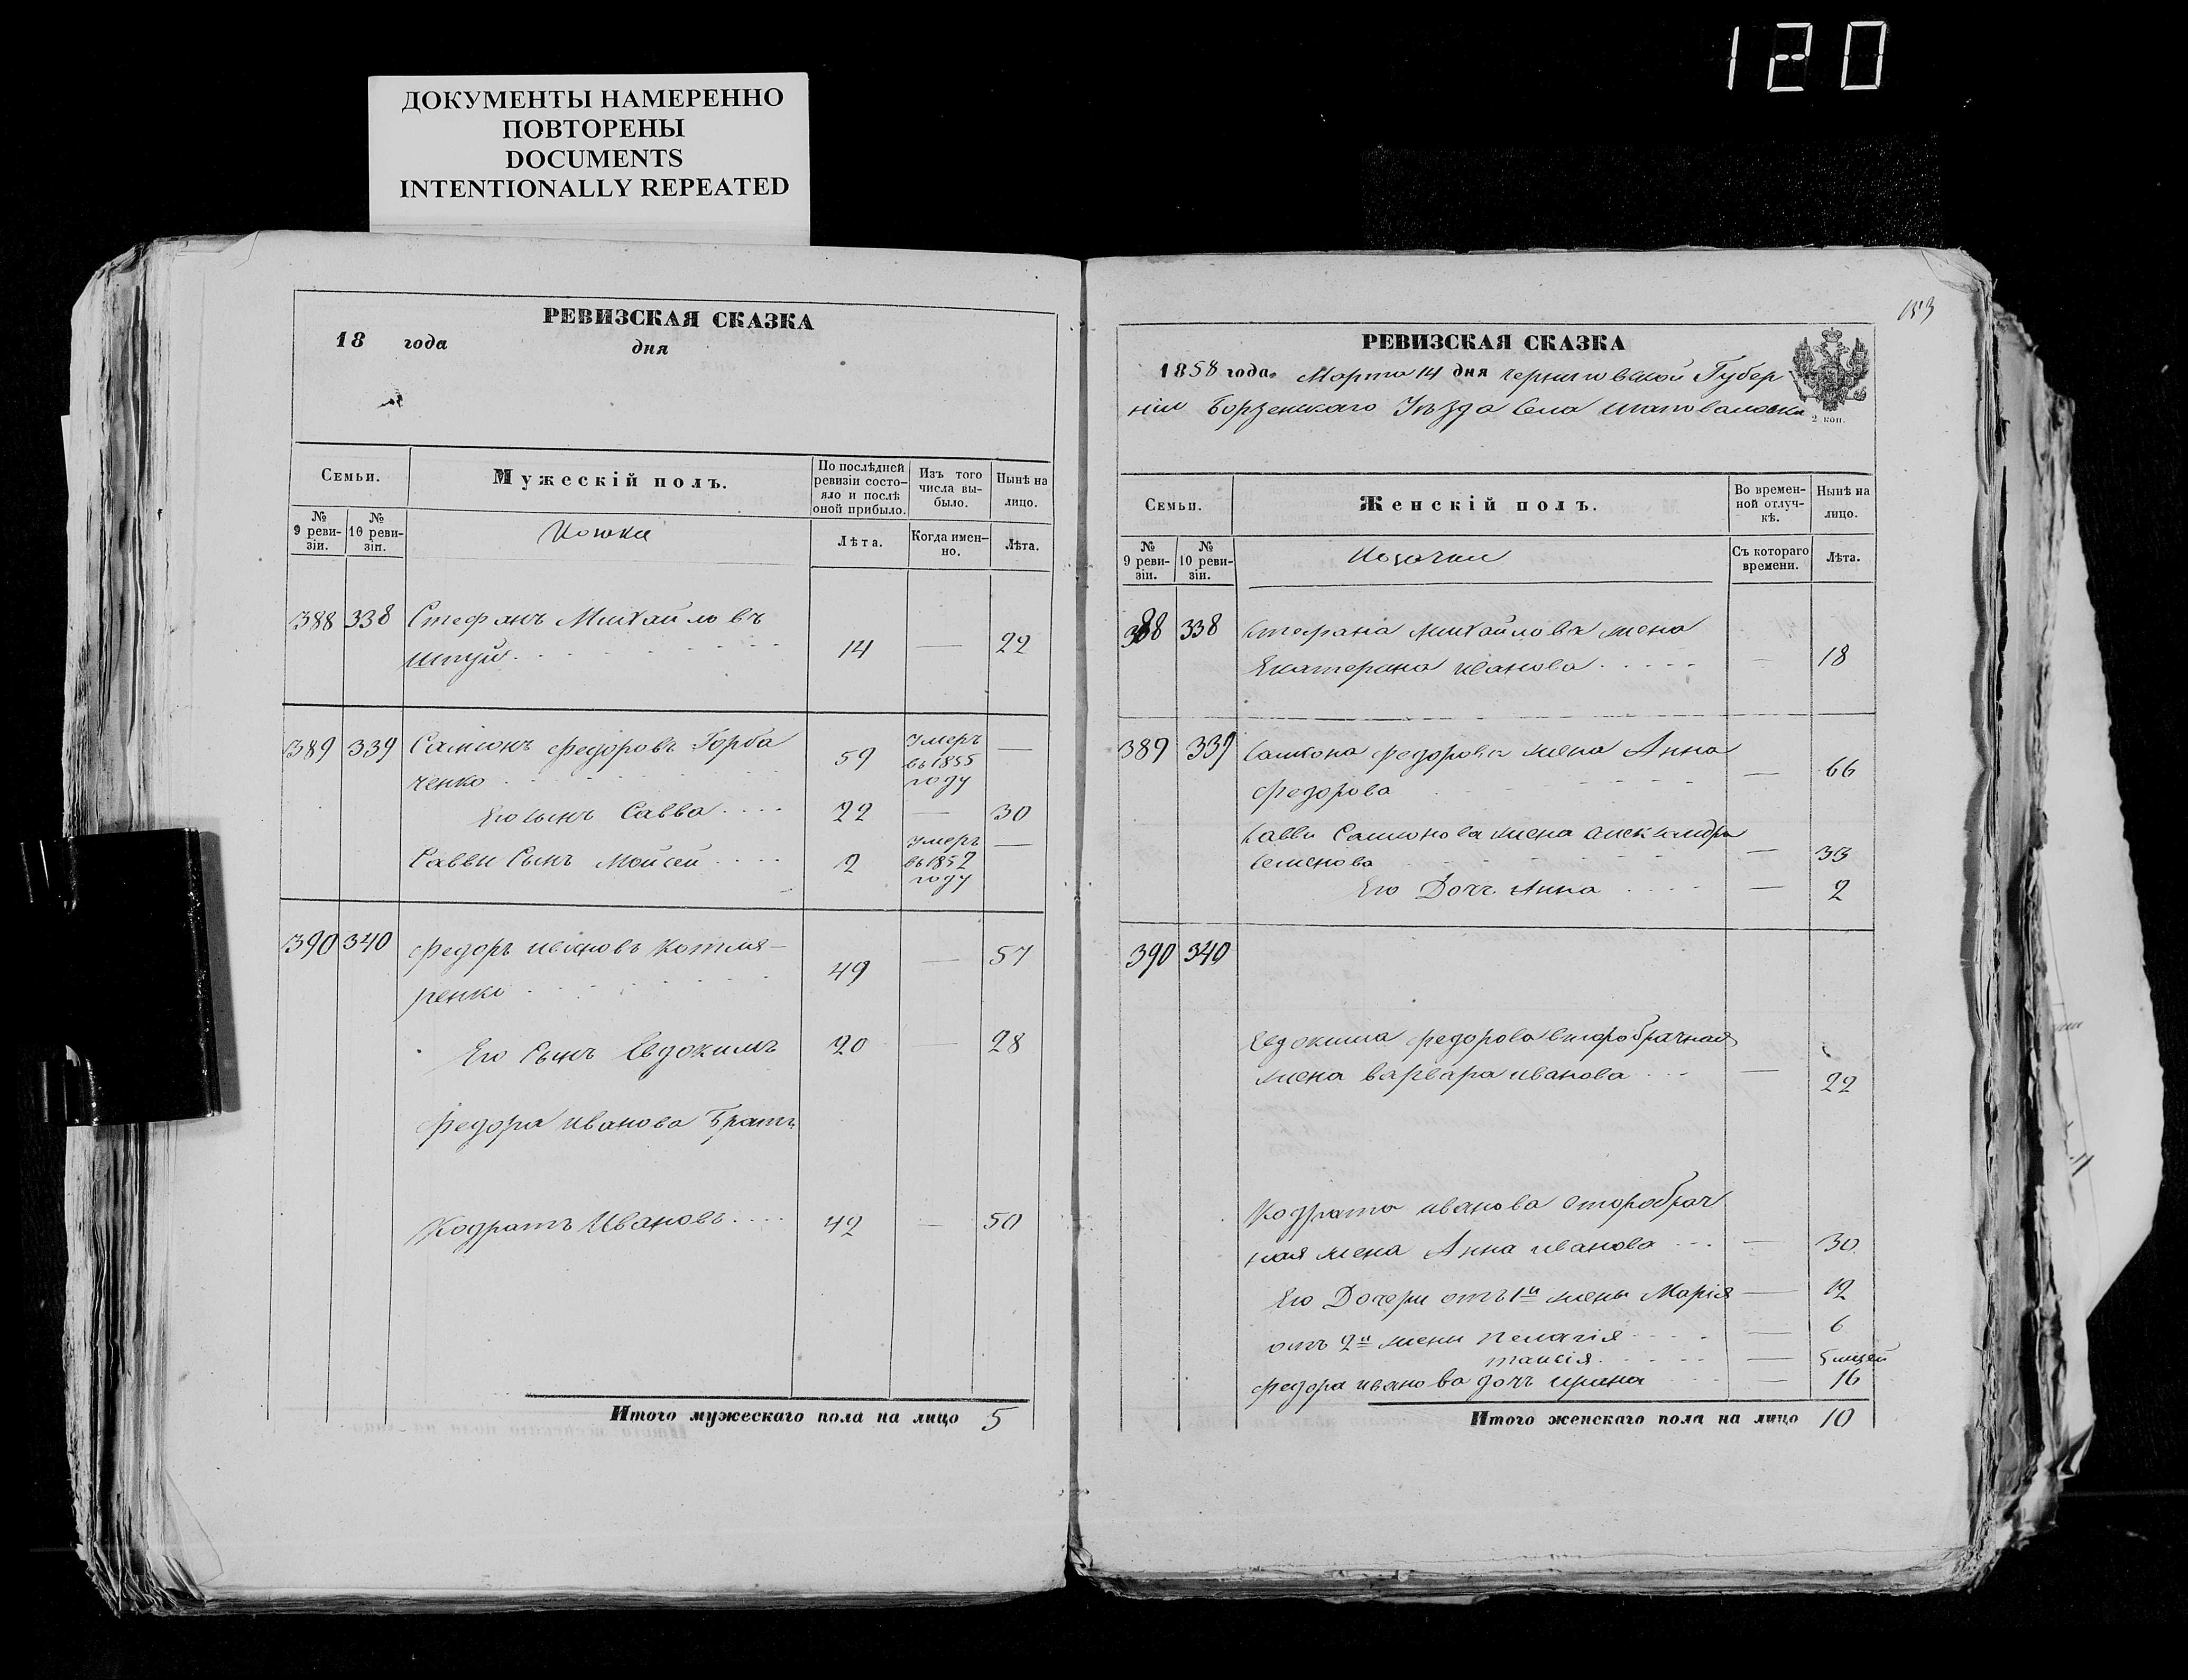 120
ДОКУМЕНТЫ НАМЕРЕННО
ПОВТОРЕНЫ
DOCUMENTS
INTENTIONALLY REPEATED
РЕВИЗСКАЯ СКАЗКА
18 года дня
Семьи.
Мужескій полъ.
По послѣдней ревизіи состояло и послѣ оной прибыло.
Изъ того числа выбыло.
Нынѣ на лицо.
№ 9 ревизіи.
№ 10 ревизіи.
Лѣта.
Когда именно.
Лѣта.
388 338 Стефанъ Михайловъ
Шпуй 14 — 22
389 339 Самсонъ Федоровъ Горба
ченко 59 Умеръ въ 1855 году —
Его сынъ Савва 22 — 30
Саввы Сынъ Мойсей 2 Умеръ въ 1852 году —
390 340 Федоръ Ивановъ Котля-
ренко 49 — 57
Его Сынъ Евдокимъ 20 — 28
Федора Иванова Братъ
Кодратъ Ивановъ 42 — 50
Итого мужескаго пола на лицо 5
153
РЕВИЗСКАЯ СКАЗКА
1858 года Марта 14 дня Черниговской Губер
ніи Борзенскаго Уѣзда Села Шаповаловки
2 коп.
Семьи.
Женскій полъ.
Во временной отлучкѣ.
Нынѣ на лицо.
№ 9 ревизіи.
№ 10 ревизіи.
Козачки
Съ котораго времени.
Лѣта.
388 338 Стефана Михайлова жена
Екатерина Иванова — 18
389 339 Самсона Федорова жена Анна
Федорова — 66
Саввы Самсонова жена Александра
Семенова — 33
Его Дочь Анна — 2
390 340
Евдокима Федорова второбрачная
жена Варвара Иванова — 22
Кодрата Иванова второбрач
ная жена Анна Иванова — 30
Его Дочери отъ 1й жены Марія — 12
отъ 2й жены Пелагія — 6
Таисія — 5 мцей
Федора Иванова дочь Ирина — 16
Итого женскаго пола на лицо 10